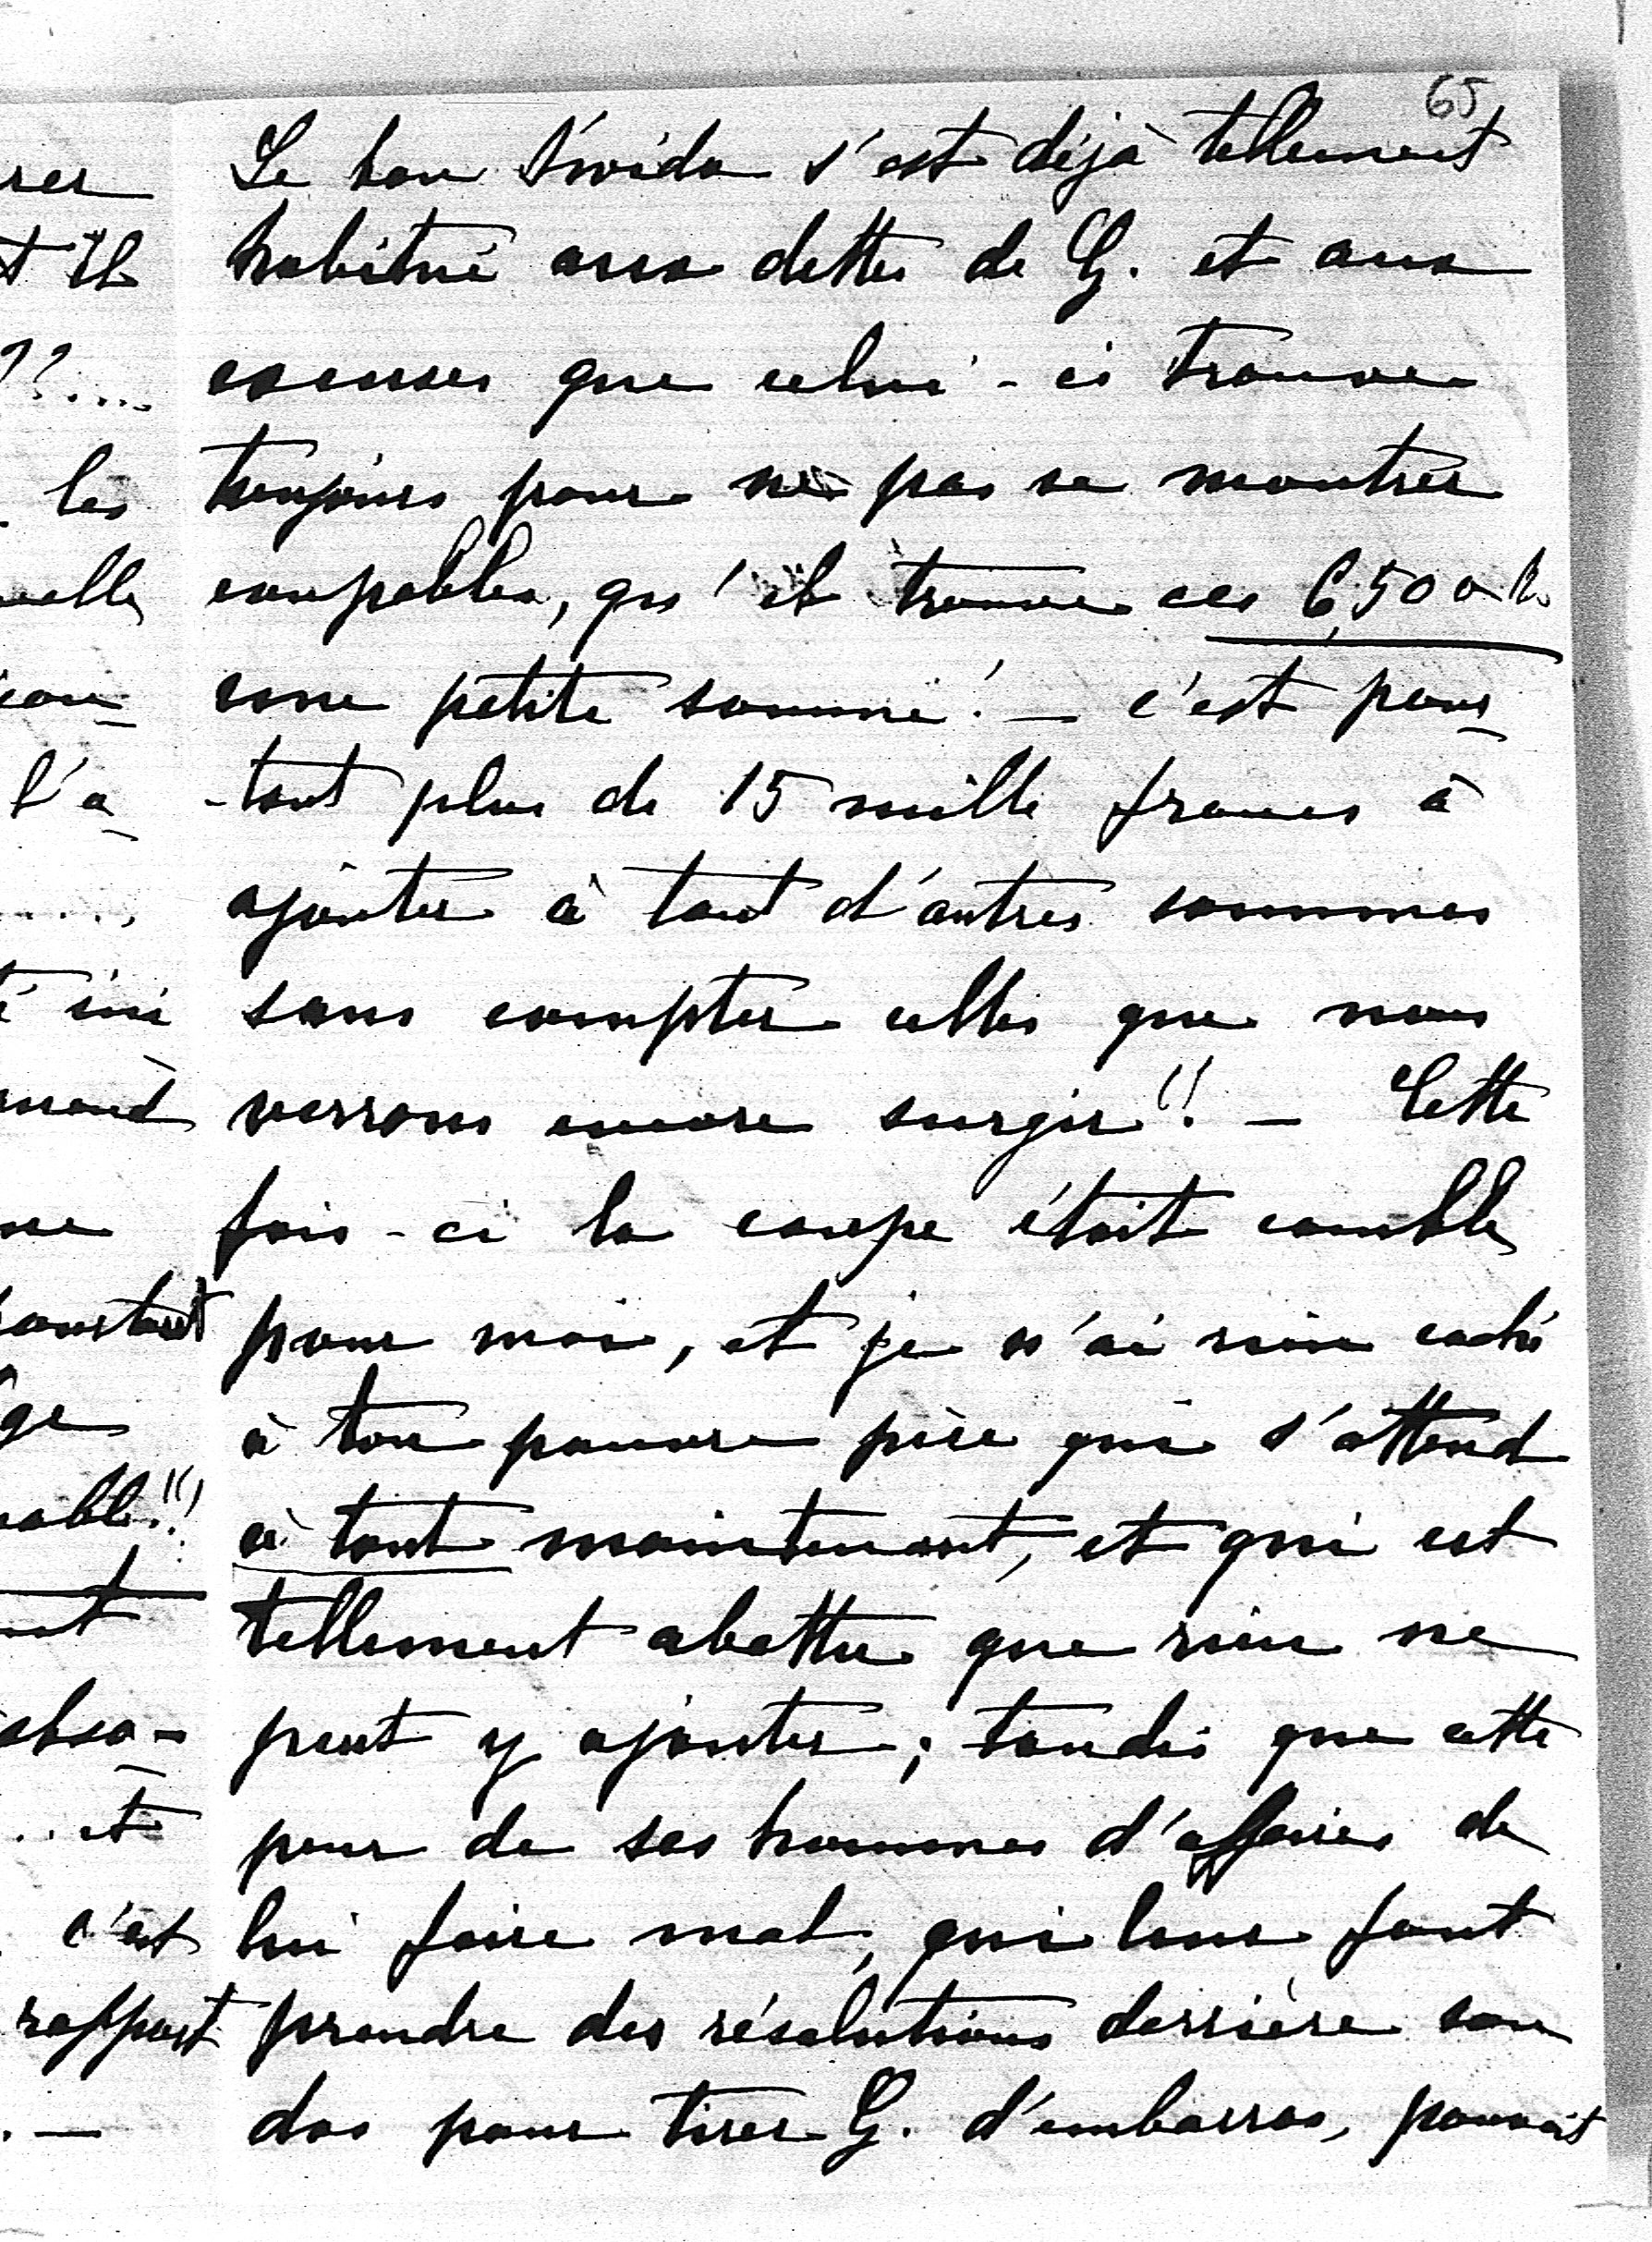 65
Le bon Świda s'est déjà tellement
habitué aux dettes de G. et aux
excuses que celui-ci trouve
toujours pour ne pas se montrer
coupable, qu'il trouve ces 6,500 R.
une petite somme! — c'est pour-
-tant plus de 15 mille francs à
ajouter à tant d'autres sommes
sans compter celles que nous
verrons encore surgir!! — Cette
fois-ci la coupe était comble
pour moi, et je n'ai rien caché
à ton pauvre père qui s'attend
à tout maintenant, et qui est
tellement abattu que rien ne
peut y ajouter; tandis que cette
peur de ses hommes d'affaires de
lui faire mal, qui leur font
prendre des résolutions derrière son
dos pour tirer G. d'embarras, pouvait
rer
t il
??....
les
uelle
l'a
....
mand
ne
pourtant
ge
able!!
nt
.. et
c'est
rapport
. —